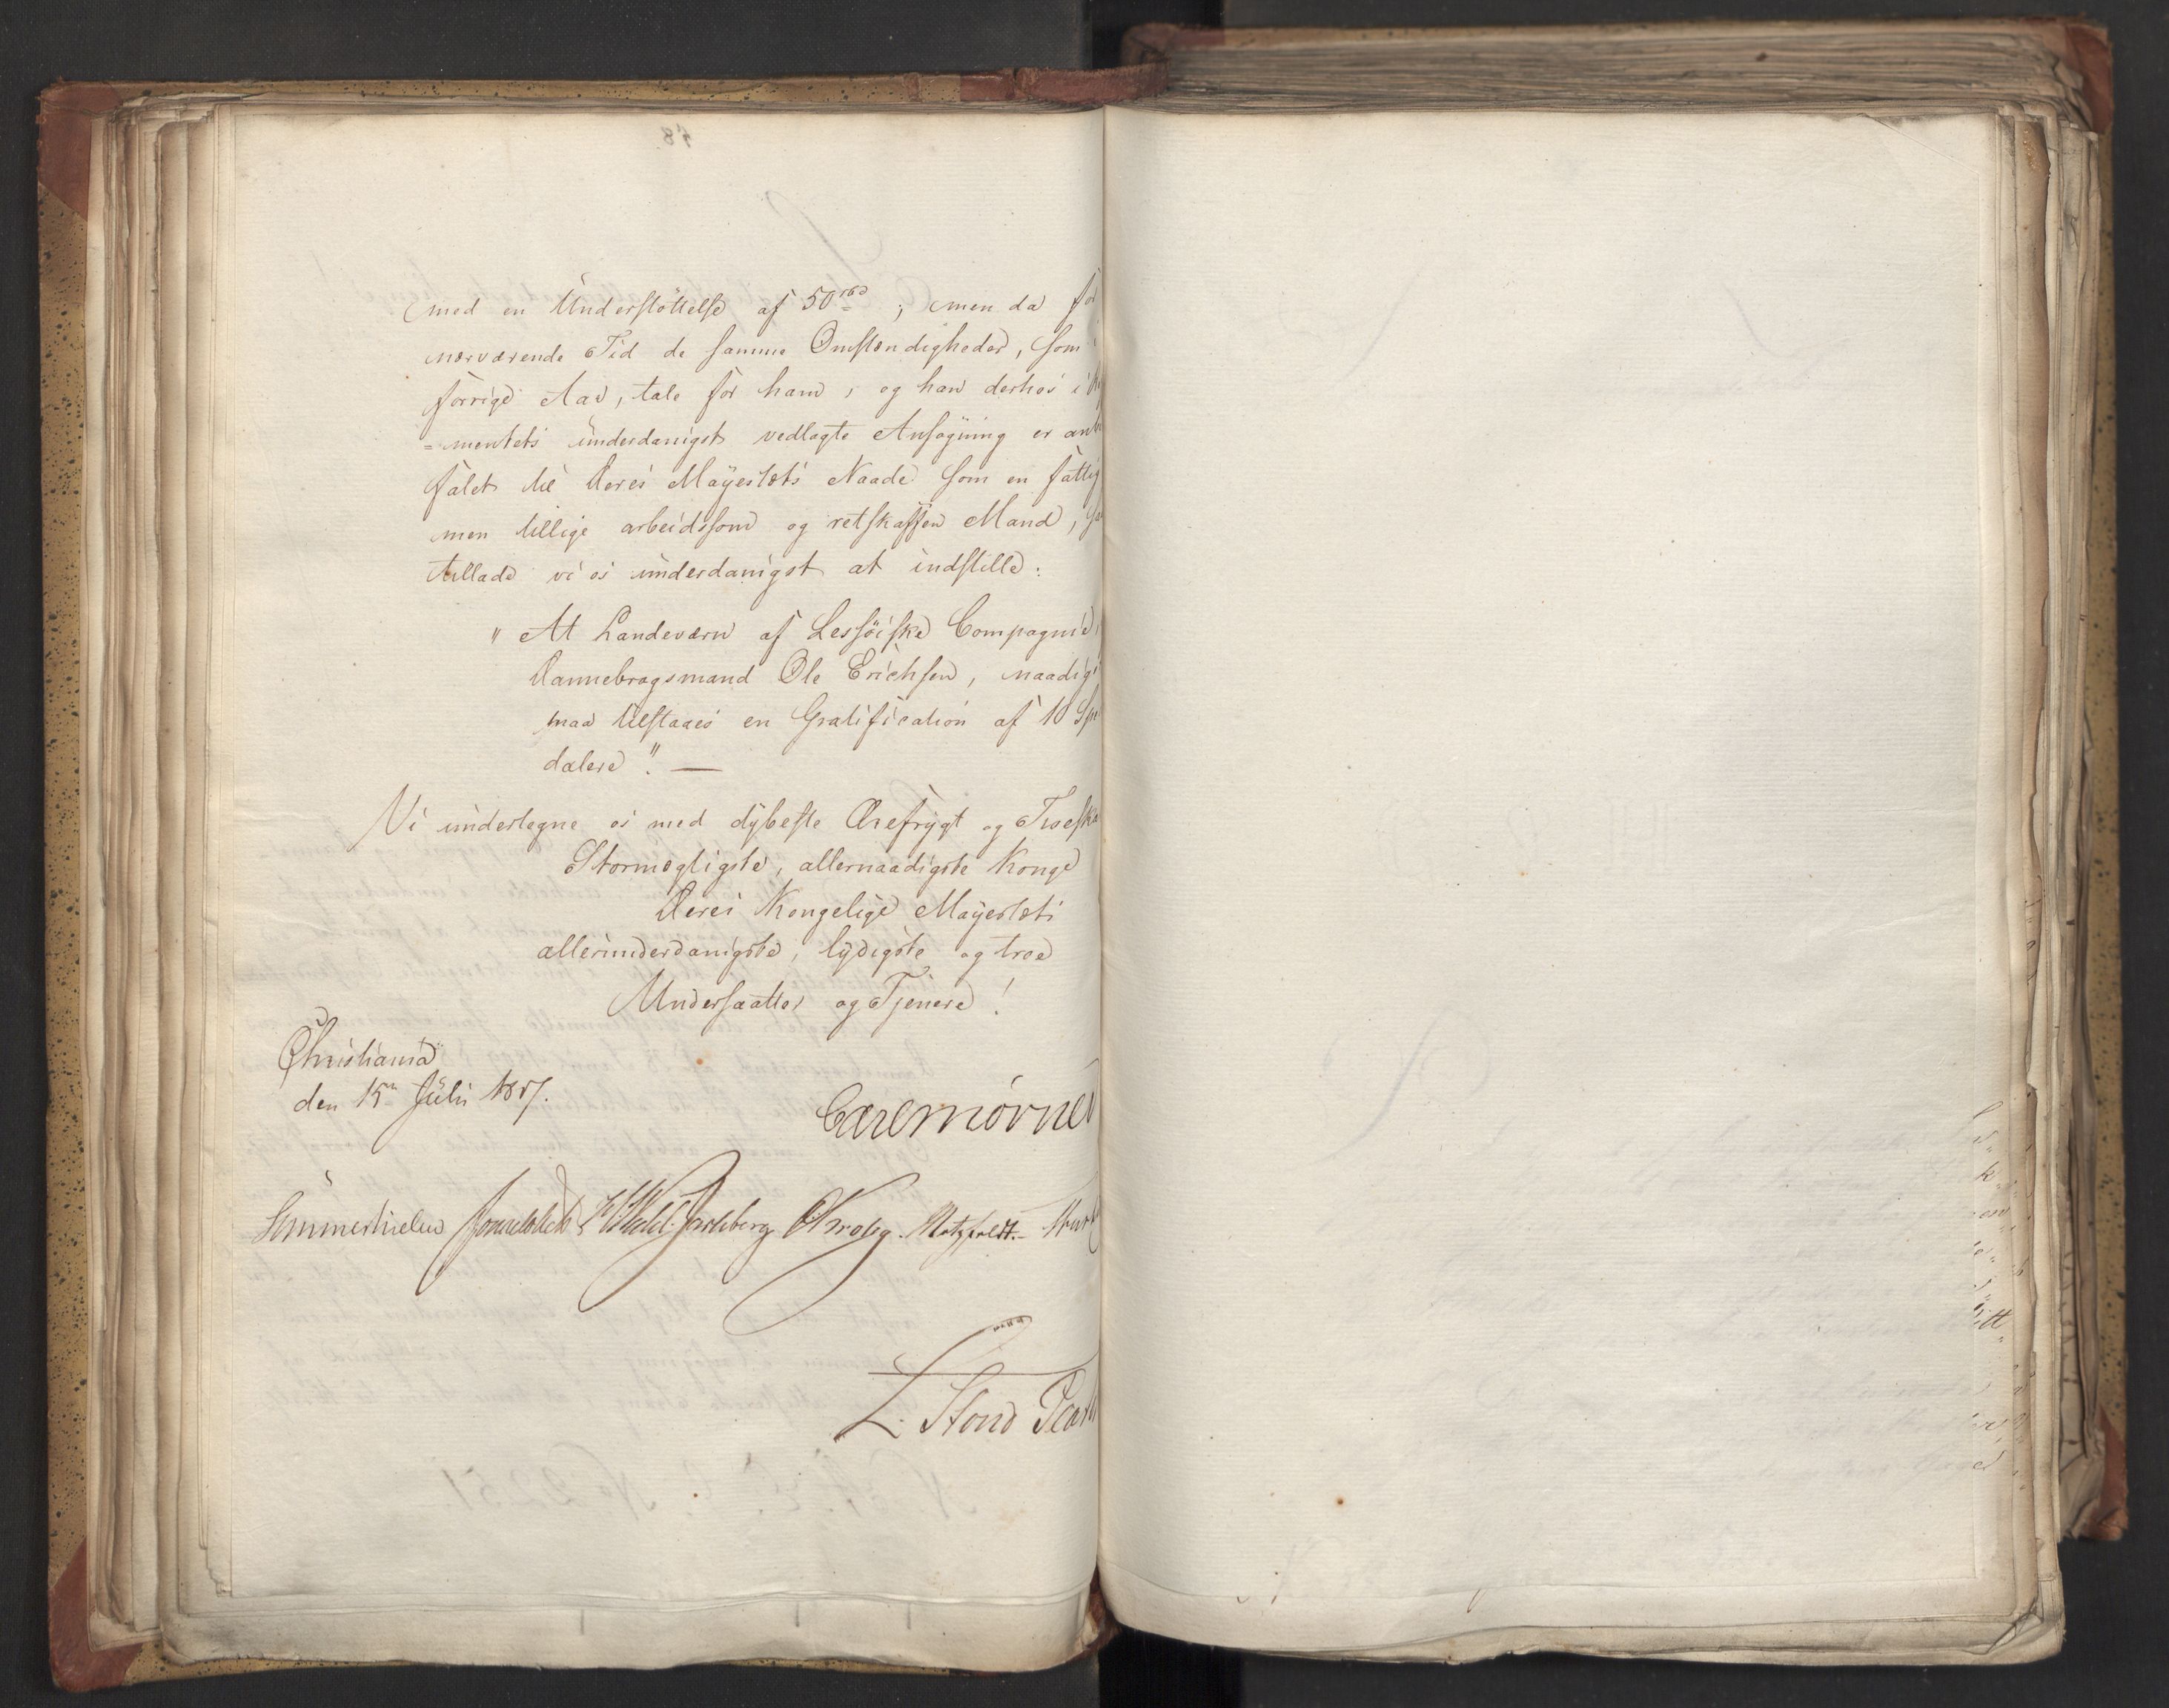 med en Understöttelse af 50 rbd; men da for
nærværende Tid de samme Omstændigheder, som
forrige Aar, tale for ham, og han derhos i
=mentets underdanigst vedlagte Ansøgning er anbe
falet til Deres Mayestæts Naade som en fattig
men tillige arbeidssom og retskaffen Mand, saa
tillade vi os underdanigst at indstille:
" At Landeværn af Lessöiske Compagnie,
Dannebrogsmand Ole Erichsen, naadigst
maa tilstaaes en Gratification af 10 Spe
daler". —
Vi undertegne os med dybeste Ærefrygt og Troeska
Stormægtigste, allernaadigste Konge
Deres Kongelige Mayestæts
allerunderdanigste, lydigste og troe
Undersaatter og Tjenere!
Christiania
den 15de Julii 1817.
Carl Mörner
Sommerhielm Hegermann Krohg. Motzfeldt.
L. Stoud Plat